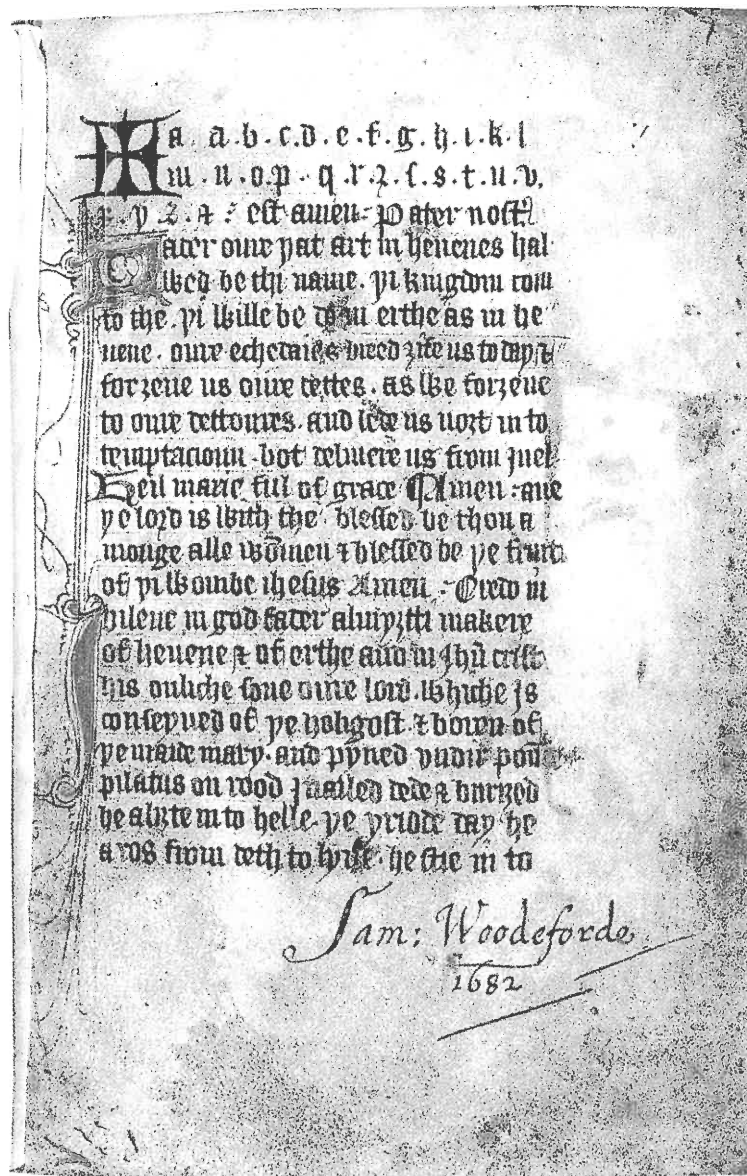 a. a. b. c. d. e. f. g. h. i. k. l
m. n. o. p. q. r. ꝛ. ſ. s. t. u. v.
x. y. z. ⁊ : eſt amen. Pater noſt
ater oure yat art in heuenes hal
wed be thi name. yi kingdom com
to the. yi wille be do in erthe as in he
uene. oure echedaies breed ȝife us to day ⁊
forȝeue us oure dettes. as we forȝeue
to oure dettoures. and lede us nort in to
temptacioun. bot delyuere us from yuel.
Heil marie ful of grace Amen: aue
ye lord is with the. bleſſed be thou a
monge alle wōmen ⁊ bleſſed be ye fruit
of yi wombe iheſus Amen. Credo in
bileue in god fader almyȝtti makere
of heuene ⁊ of erthe and in Jhū criſt
his onliche ſone oure lord. whiche is
conſeyued of ye holigoſt ⁊ boren of
ye maide mary. and pyned vndir poū
pilatus on rood nailed dede ⁊ buryed
he aliȝte in to helle. ye yridde day he
aros from deth to lyfe. he ſtie in to
Sam: Woodeforde
1682